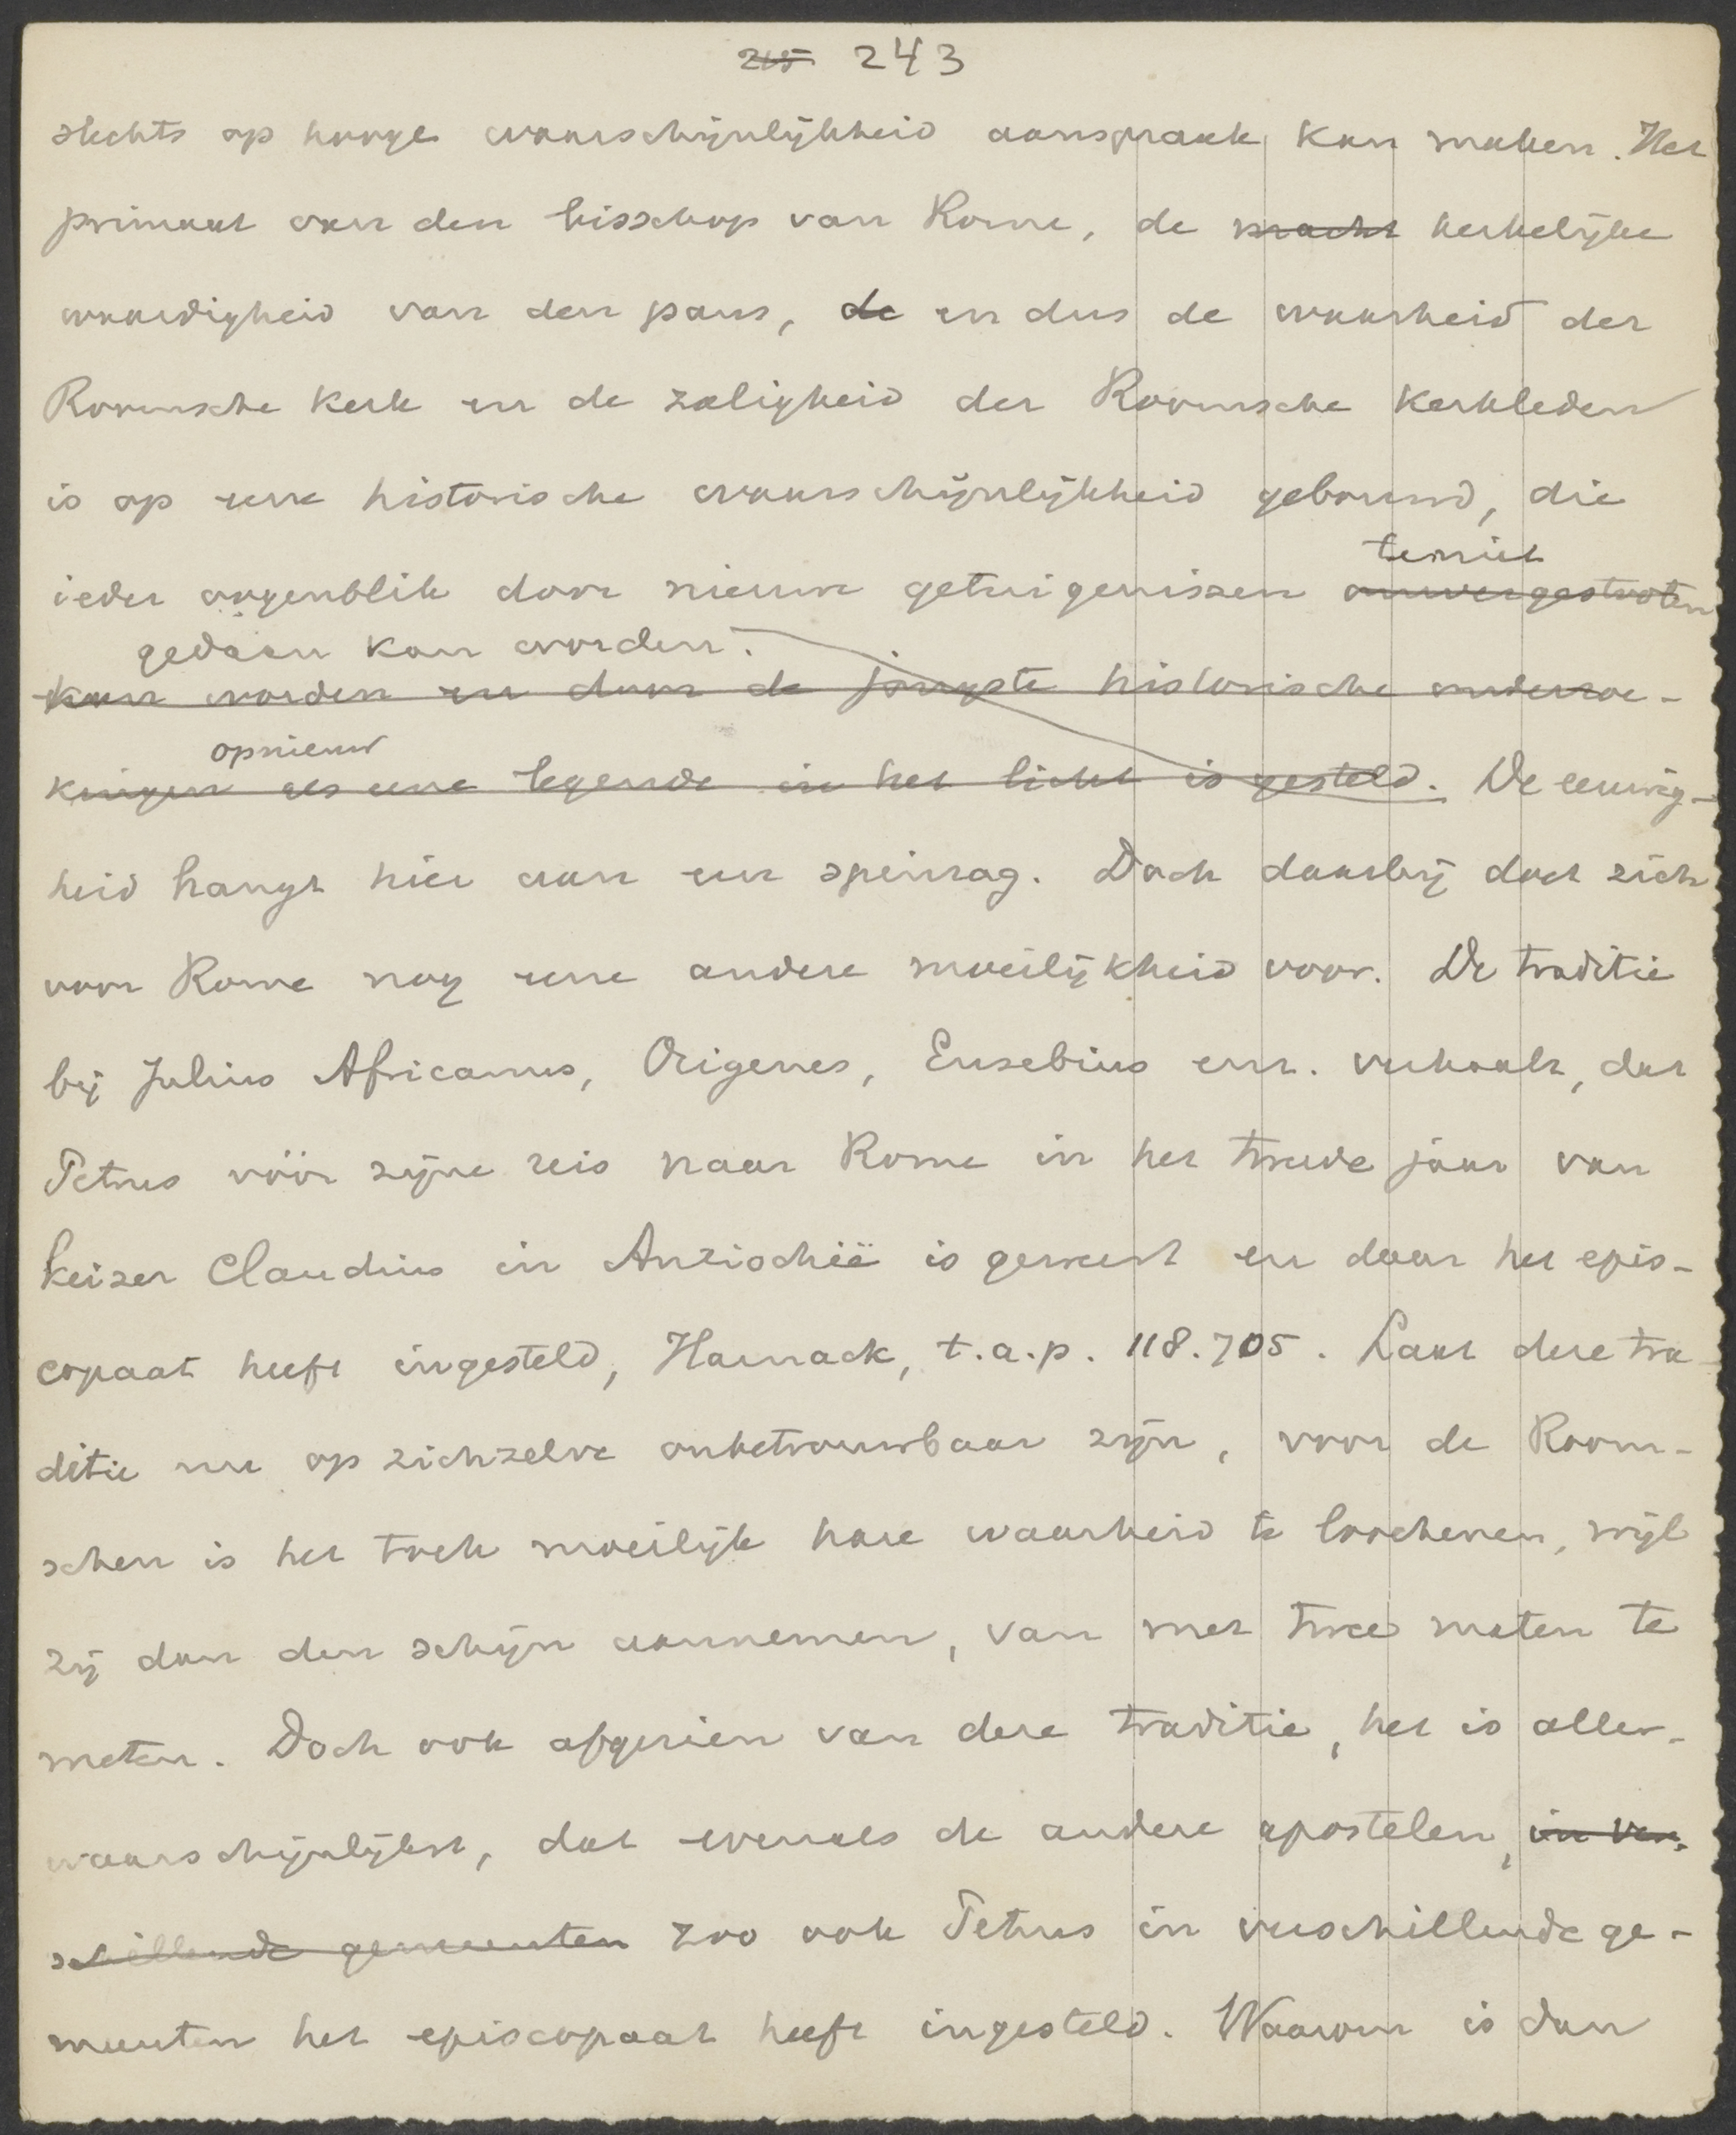 215 243
slechts op hooge waarschijnlijkheid aanspraak kan maken. Het
primaat van den bisschop van Rome, de macht kerkelijke
waardigheid van den paus, de en dus de waarheid der
Roomsche kerk en de zaligheid der Roomsche kerkleden
is op eene historische waarschijnlijkheid gebouwd, die
teniet
ieder oogenblik door nieuwe getuigenissen omvergestooten
gedaan kan worden.
kan worden en door de jongste historische onderzoe-
opnieuw
kingen als eene legende in het licht is gesteld. De eeuwig-
heid hangt hier aan een spinrag. Doch daarbij doet zich
voor Rome nog eene andere moeilijkheid voor. De traditie
bij Julius Africanus, Origenes, Eusebius enz. verhaalt, dat
Petrus vóór zijne reis naar Rome in het tweede jaar van
keizer Claudius in Antiochië is geweest en daar het epis-
copaat heeft ingesteld, Harnack, t.a.p. 118.705. Laat deze tra-
ditie nu op zichzelve onbetrouwbaar zijn, voor de Room-
schen is het toch moeilijk hare waarheid te loochenen, wijl
zij dan den schijn aannemen, van met twee maten te
meten. Doch ook afgezien van deze traditie, het is aller-
waarschijnlijkst, dat evenals de andere apostelen, in ver-
schillende gemeenten zoo ook Petrus in verschillende ge-
meenten het episcopaat heeft ingesteld. Waarom is dan